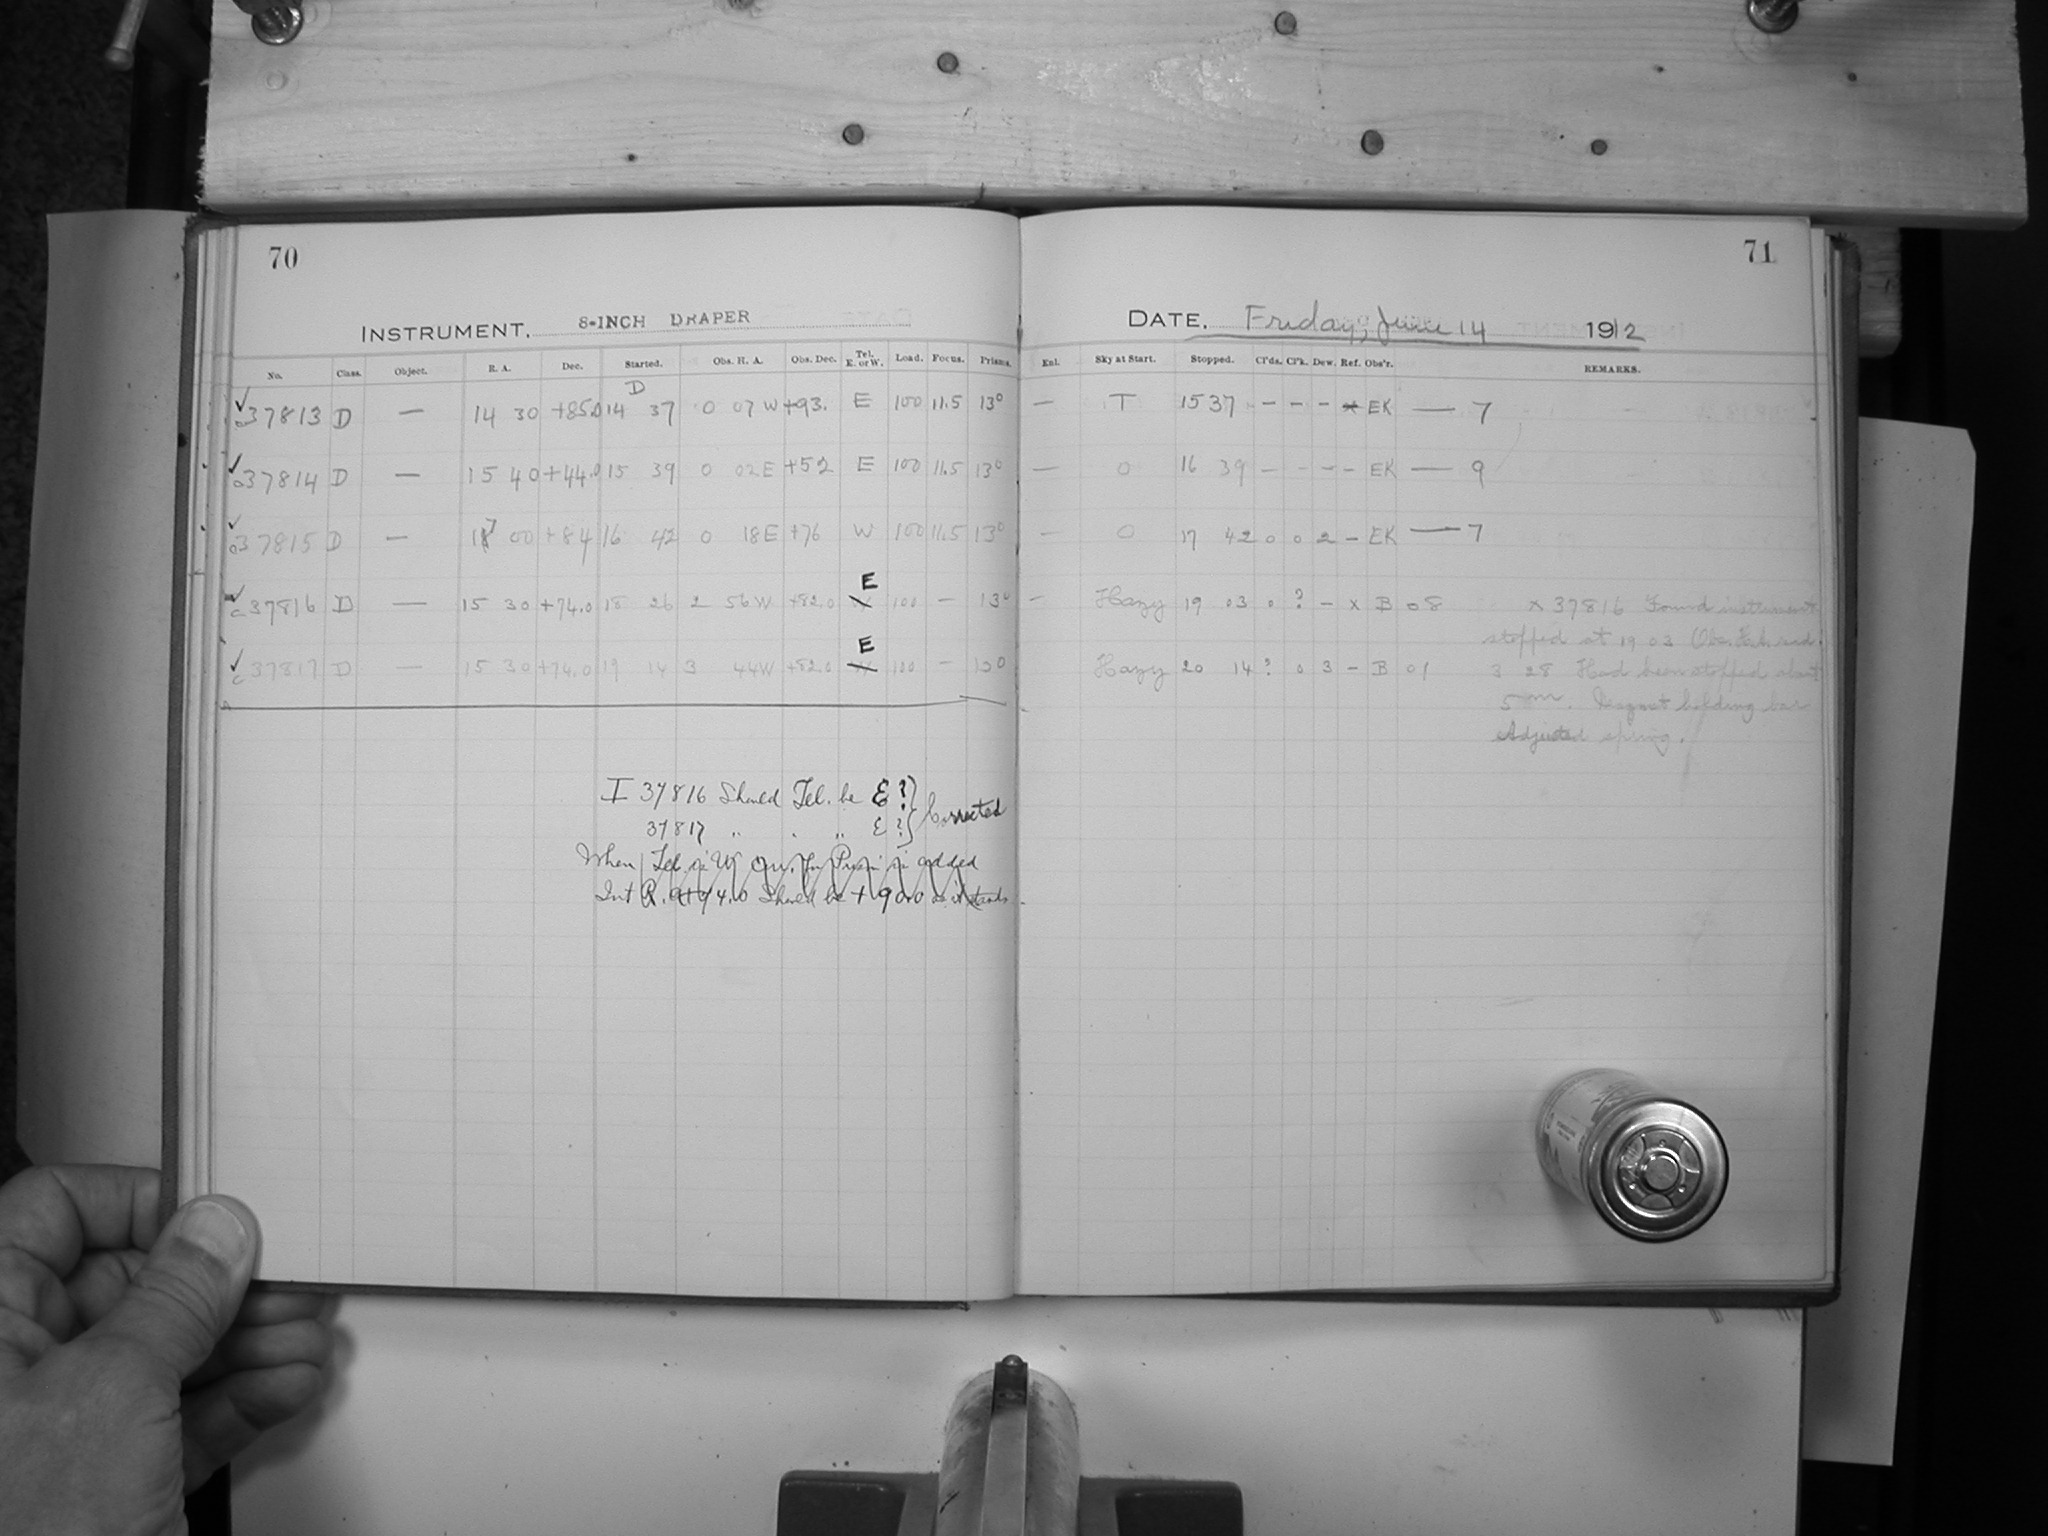 70
71
INSTRUMENT, 8-INCH DRAPER
DATE, Friday, June 14 1912
No. Class. Object. R. A. Dec. Started. Obs. H. A. Obs. Dec. Tel. E. or W. Load. Focus. Prisms.
Enl. Sky at Start. Stopped. Cl'ds. Cl'k. Dew. Ref. Obs'r. REMARKS.
D
37813 D — 14 30 +85.0 14 37 0 07 W +93. E 100 11.5 13° — T 15 37 - - - x EK — 7
37814 D — 15 40 +44.0 15 39 0 02 E +52 E 100 11.5 13° — 0 16 39 - - - - EK — 9
37815 D — 17 00 +84 16 42 0 18 E +76 W 100 11.5 13° — 0 17 42 0 0 2 - EK — 7
E
c37816 D — 15 30 +74.0 18 26 2 56 W +82.0 W 100 — 13° — Hazy 19 03 0 ? - x B 08 x 37816 Found instrument
stopped at 19 03 Obs. H.A. read
E
c37817 D — 15 30 +74.0 19 14 3 44 W +82.0 W 100 — 13° Hazy 20 14 ? 0 3 - B 01 3 28 Had been stopped about
5 m. Magnet holding bar
Adjusted spring.
I 37816 Should Tel. be E ? } Corrected
37817 " " " E ? }
When Tel. is W Cor. for Prism is added
+94.0 Should be +90.0 as it stands